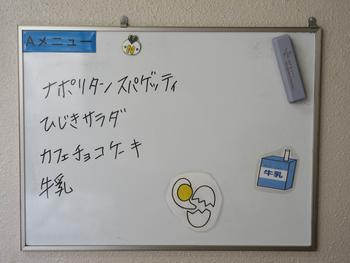 Aメニュー
ナポリタンスパゲッティ
ひじきサラダ
カフェチョコケーキ
牛乳
牛乳